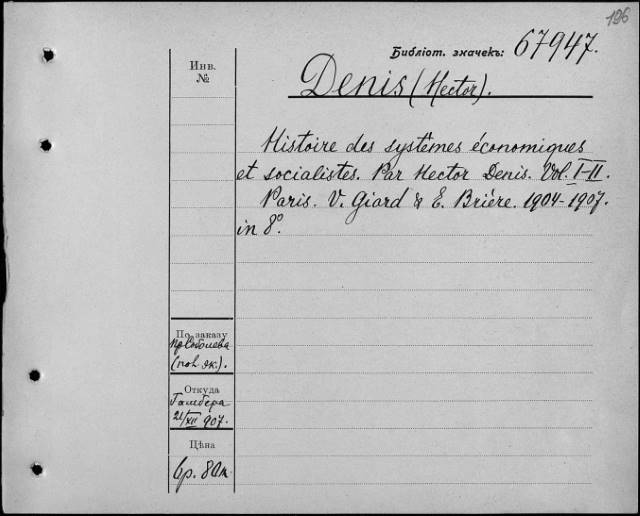 196
Библіот. значекъ: 67947.
Инв.
№
Denis (Hector).
Histoire des systêmes économiques
et socialistes. Par Hector Denis. Vol. I-II.
Paris. V. Giard & E. Brière. 1904-1907.
in 8º.
По заказу
пр. Соболева
(пол. эк.).
Откуда
Гамбера
21/XII 907.
Цѣна
6р. 80к